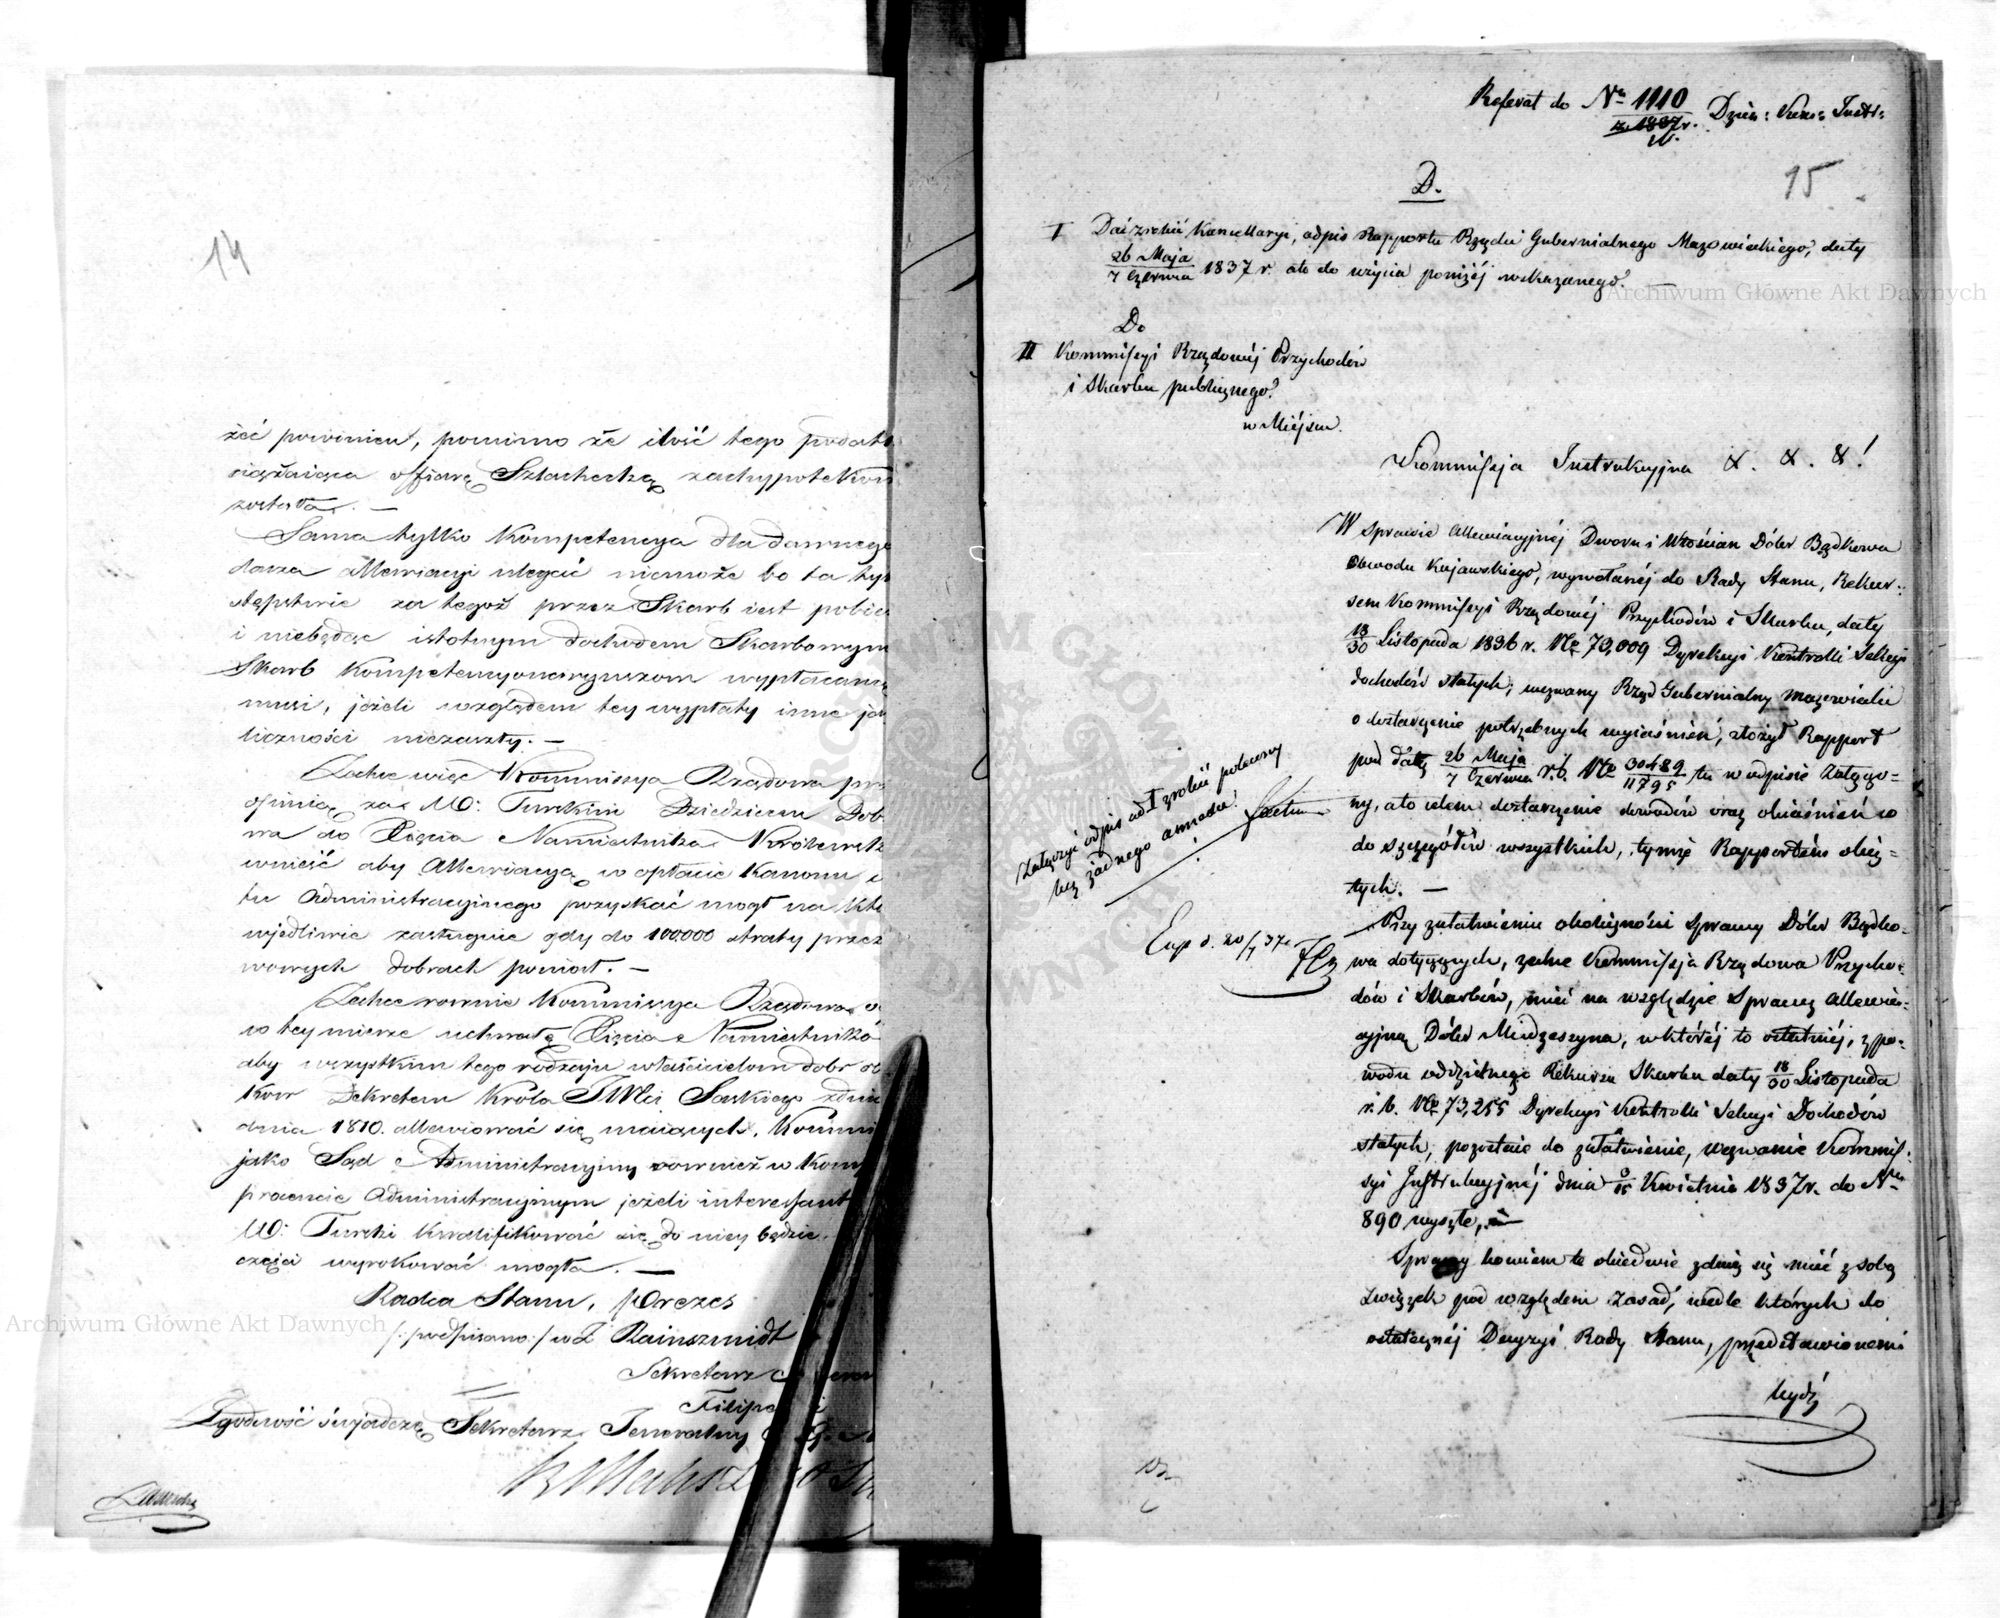 14
żeć powinien, pomimo że ilość tego podat
ciążaiąca offiarę Szlachecką zachypotekow
została. —
Sama tylko Kompetencya dla dawnego
darza allewiacyi uledz niemoże bo ta tyl
stępstwie za tegoż przez Skarb iest pobie
i niebędąc istotnym dochodem Skarbowym
Skarb Kompetencyonaryuszom wypłacane
musi, jeżeli względem tey wypłaty inne ja
liczności niezaszły. —
Zechce więc Kommissya Rządowa prz
opinią za W: Turskim Dziedzicem Dob
wa do Xięcia Namiestnika Królewsk
wnieść aby Allewiacyą w opłacie Kanonu i
tu Administracyjnego pozyskać mógł na któ
wiedliwie zasługuie gdy do 100000 straty przez
wowych dobrach poniosł. —
Zechce rownie Kommissya Rządowa
w tey mierze uchwałę Xięcia Namiestnika
aby wszystkim tego rodzaju właścicielom dobr
Dekretem Króla JMci Saskiego zdnia
dnia 1810. allewiować się maiących, Kommis
jako Sąd Administracyiny rownież w Kom
procencie Administracyjnym jeżeli interessant
W: Turski kwalifikować się do niey będzie
części wyrokować mogła. —
Radca Stanu, Prezes
/: podpisano :/ w Z Rainszmidt
Sekretarz
Filip
Zgodność świadczę Sekretarz Jeneralny
Referat do Nru 1110 Dzien: Kom: Instr:
z 1837 r.
15
D.
I Dai zrobić Kancellaryi, odpis Rapportu Rządu Gubernialnego Mazowieckiego, daty
26 Maja / 7 Czerwca 1837 r. ato do użycia poniżéj wskazanego. —
Do
II Kommissyi Rządowéj Przychodów
i Skarbu publicznego.
w Miejscu.
Kommissja Instrukcyjna &. &. &!
W sprawie Allewiacyjnéj Dworu i Włościan Dóbr Bądkowa
Obwodu Kujawskiego, wywołanéj do Rady Stanu, Rekur:
sem Kommissyi Rządowéj Przychodów i Skarbu, daty
18/30 Listopada 1836 r. No 70,009 Dyrekcyi Kontrolli Sekcyi
dochodów stałych, wezwany Rząd Gubernialny Mazowiecki
o dostarczenie potrzebnych wyiaśnień, złożył Rapport
pod datą 26 Maja / 7 Czerwca r.b. No 30489/11795 tu w odpisie załączo=
ny, a to celem dostarczenie dowodów oraz obiaśnień w
do szczegółów wszystkich, tymże Rapportem obię=
tych. —
Załączyć odpis ad I zrobić polecony
bez żadnego annexu.
Factum
Exp d. 20/7 37.
Przy załatwieniu okoliczności Sprawy Dóbr Bądko=
wa dotyczących, zechce Kommissja Rządowa Przycho=
dów i Skarbu, mieć na względzie Sprawę Allewia=
cyjną Dóbr Miedzeszyna, w któréj to ostatniéj, z po=
wodu oddzielnego Rekursu Skarbu daty 18/30 Listopada
r. b. No 73,255 Dyrekcyi Kontrolli Sekcyi Dochodów
stałych, pozostaie do załatwienia, wezwanie Kommis:
syi Instrukcyjnéj dnia 3/15 Kwietnia 1837 r. do Nru
890 wyszłe,
Sprawy bowiem te obiedwie zdaią się mieć z sobą
związek pod względem zasad, wedle których do
ostatecznéj Decyzyi Rady Stanu, przedstawionemi
będą